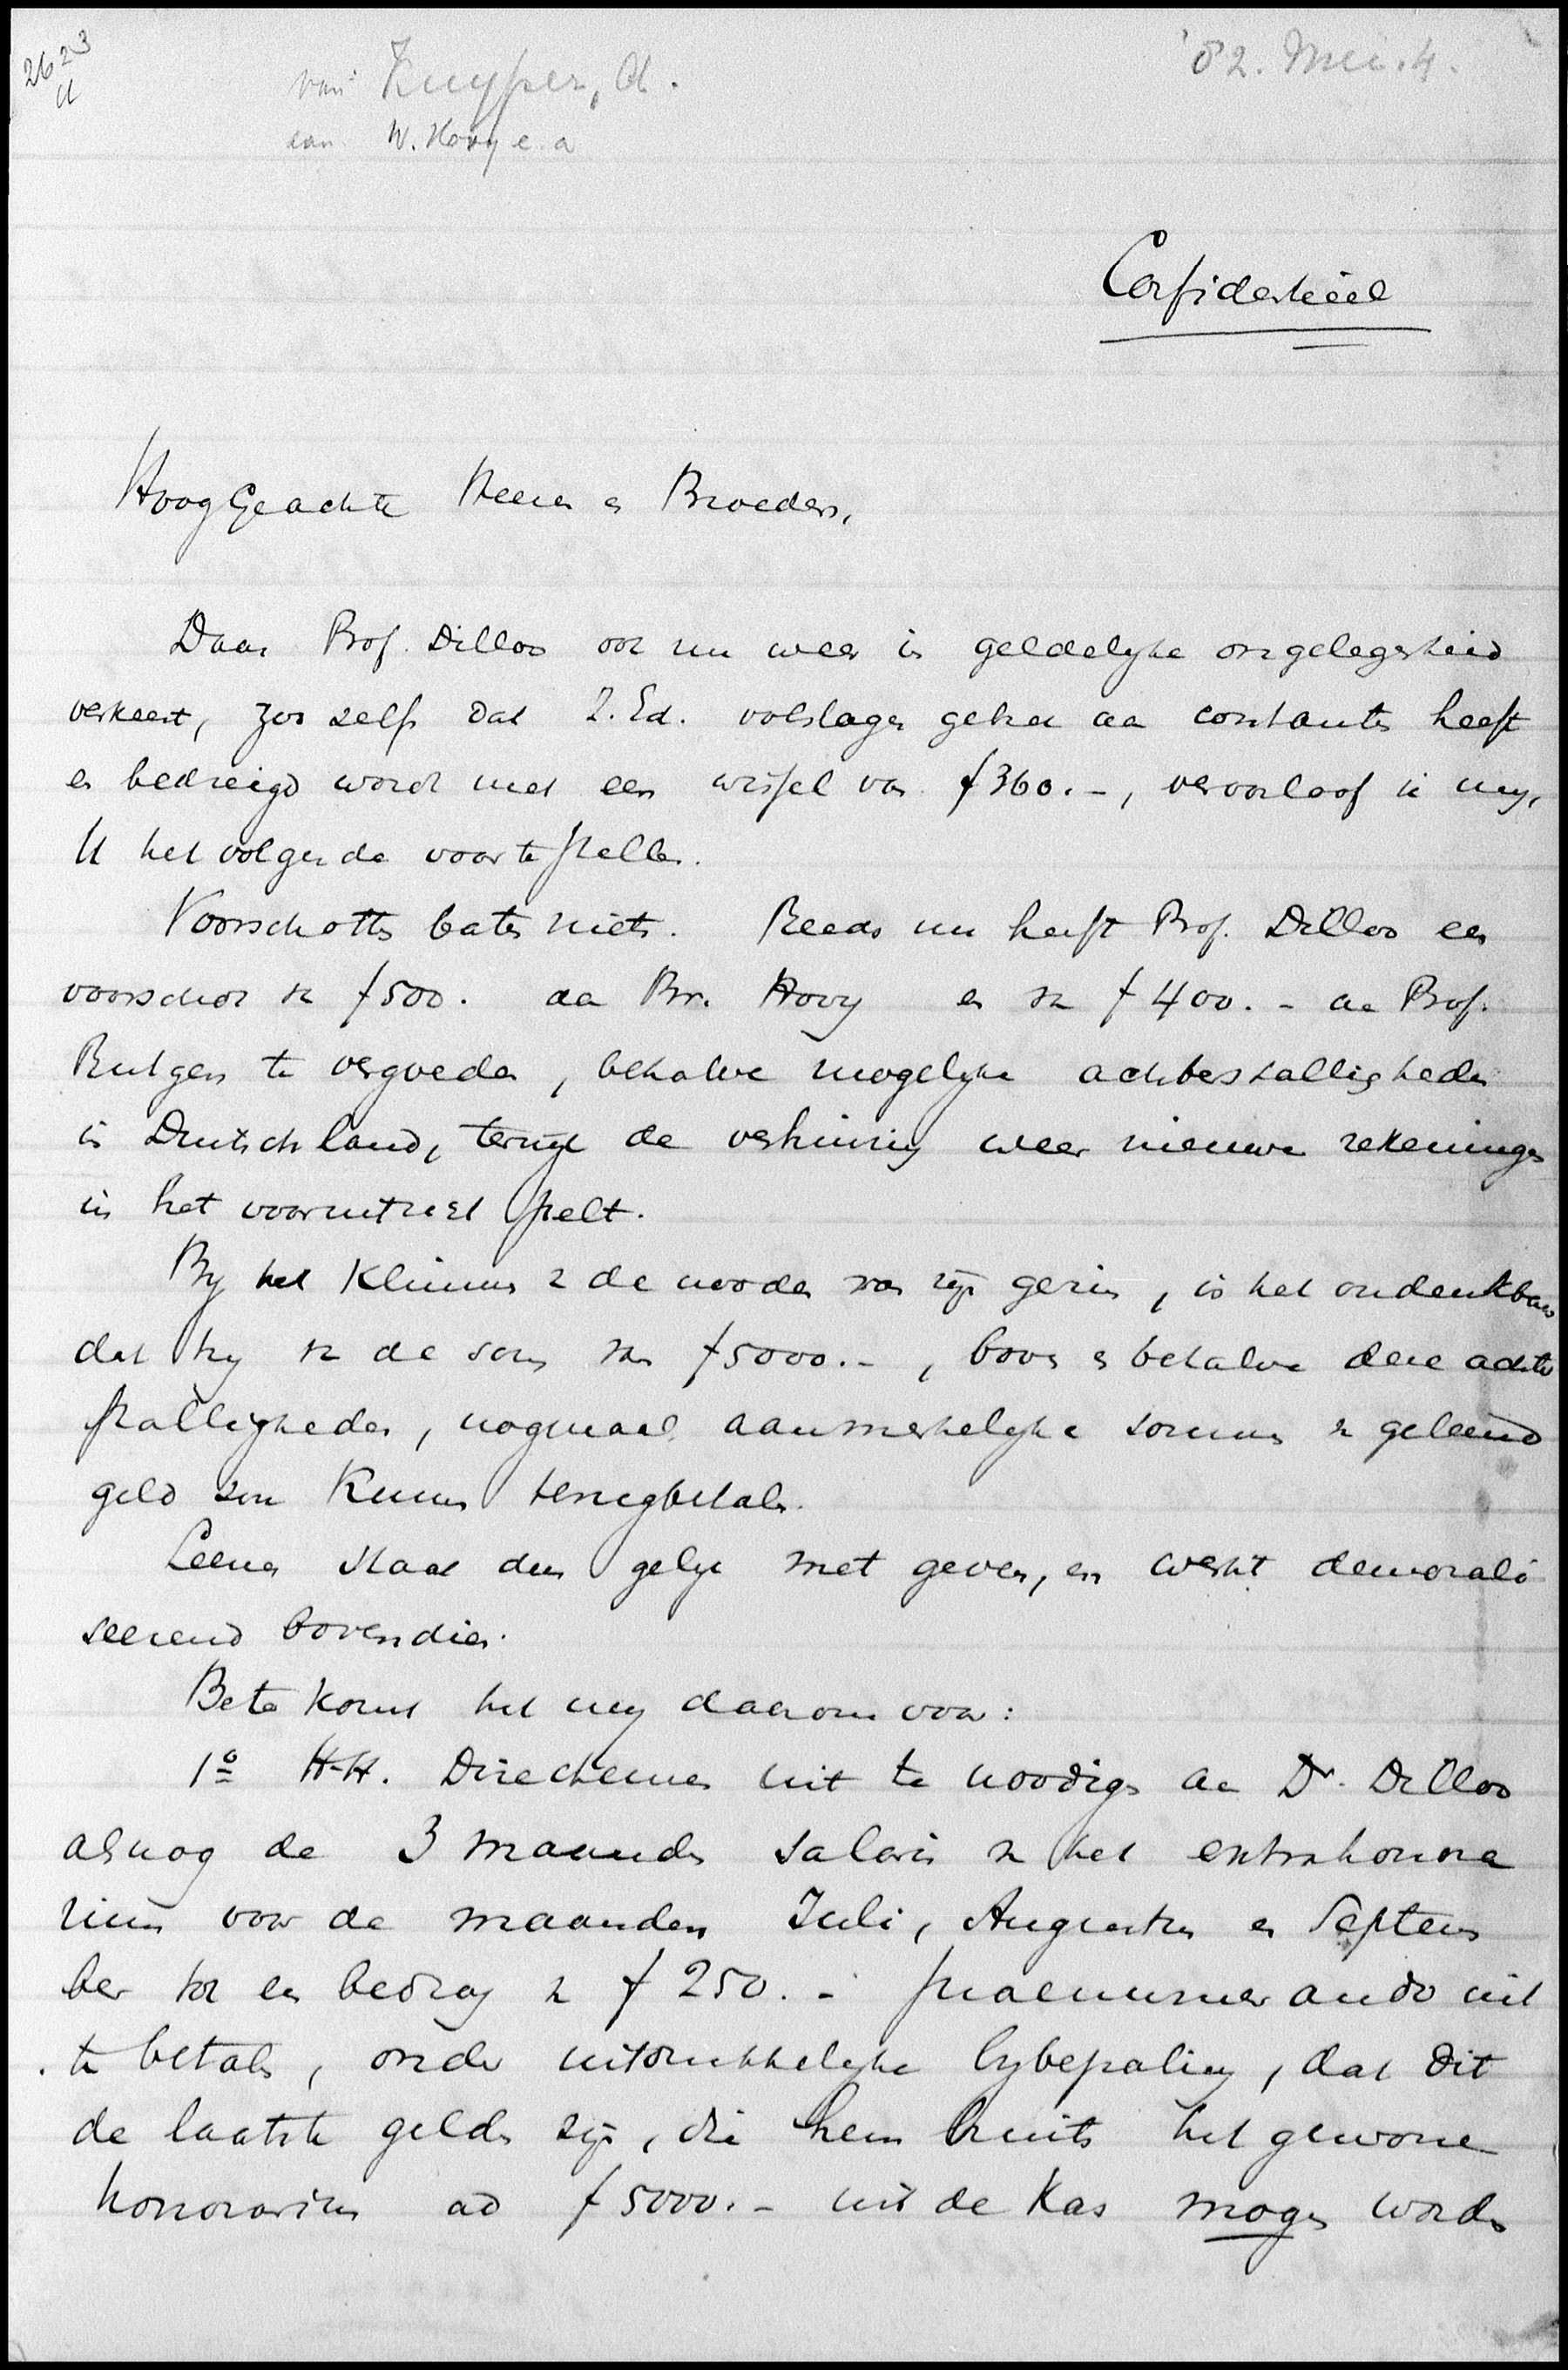 2623
d
van Kuyper, A.
aan W. Hovy e.a
'82. Mei. 4.
Confidentieel
HoogGeachte Heeren en Broeders,
Daar Prof. Dilloo ook nu weer in geldelyke ongelegenheid
verkeert, zoo zelfs dat Z.Ed. volslagen gebrek aan contanten heeft
en bedreigd wordt met een wissel van f 360.-, veroorloof ik my,
U het volgende voor te stellen.
Voorschotten baten niets. Reeds nu heeft Prof. Dilloo een
voorschot van f 500. aan Br. Hovy en van f 400.- aan Prof.
Rutgers te vergoeden, behalve mogelyke achterstalligheden
in Duitschland, terwyl de verhuizing weer nieuwe rekeningen
in het vooruitzicht stelt.
By het klimmen van de nooden van zyn gezin, is het ondenkbaar
dat hy van de som van f 5000.-, boven en behalve deze achter
stalligheden, nogmaals aanmerkelyke sommen van geleend
geld zou kunnen terugbetalen.
Leenen staat dus gelyk met geven, en werkt demorali
seerend bovendien.
Beter komt het my daarom voor:
1o H.H. Directeuren uit te noodigen aan Dr. Dilloo
alsnog de 3 maanden salaris van het extrahonora
rium voor de maanden Juli, Augustus en Septem
ber tot een bedrag van f 250.- praenumerando uit
te betalen, onder uitdrukkelyke bybepaling, dat dit
de laatste gelden zyn, die hem buiten het gewone
honorarium ad f 5000.- uit de kas mogen worden